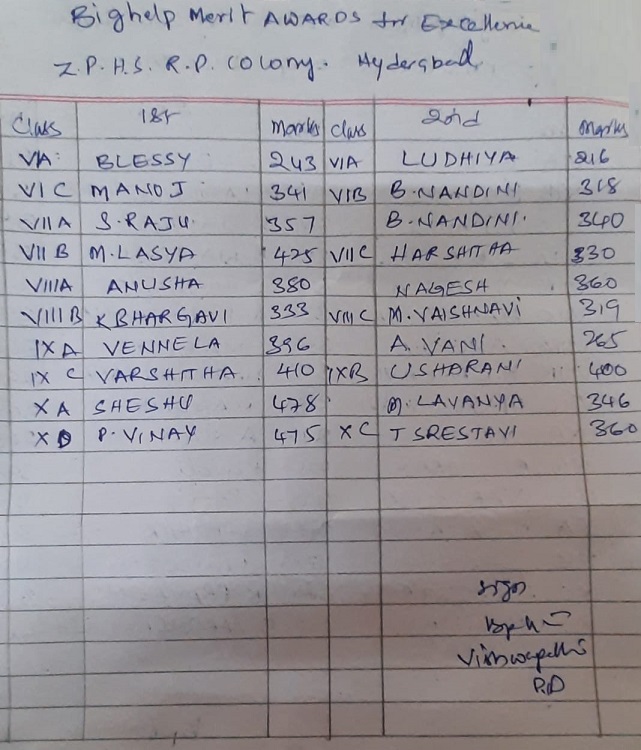 Bighelp Merit AWARDS for Excellence
Z.P.H.S. R.P. COLONY. Hyderabad
Class 1st Marks Class 2nd Marks
VA BLESSY 243 VIA LUDHIYA 216
VI C MANOJ 341 VIB B.NANDINI 318
VII A S.RAJU 357 B.NANDINI. 340
VII B M.LASYA 425 VII C HARSHITHA 330
VIIIA ANUSHA 380 NAGESH 360
VIII B K BHARGAVI 333 VIII C M.VAISHNAVI 319
IX A VENNELA 396 A.VANI. 265
IX C VARSHITHA. 410 IXB USHARANI 400
X A SHESHU 478 LAVANYA 346
X P.VINAY 475 X C T SRESTAVI 360
RD